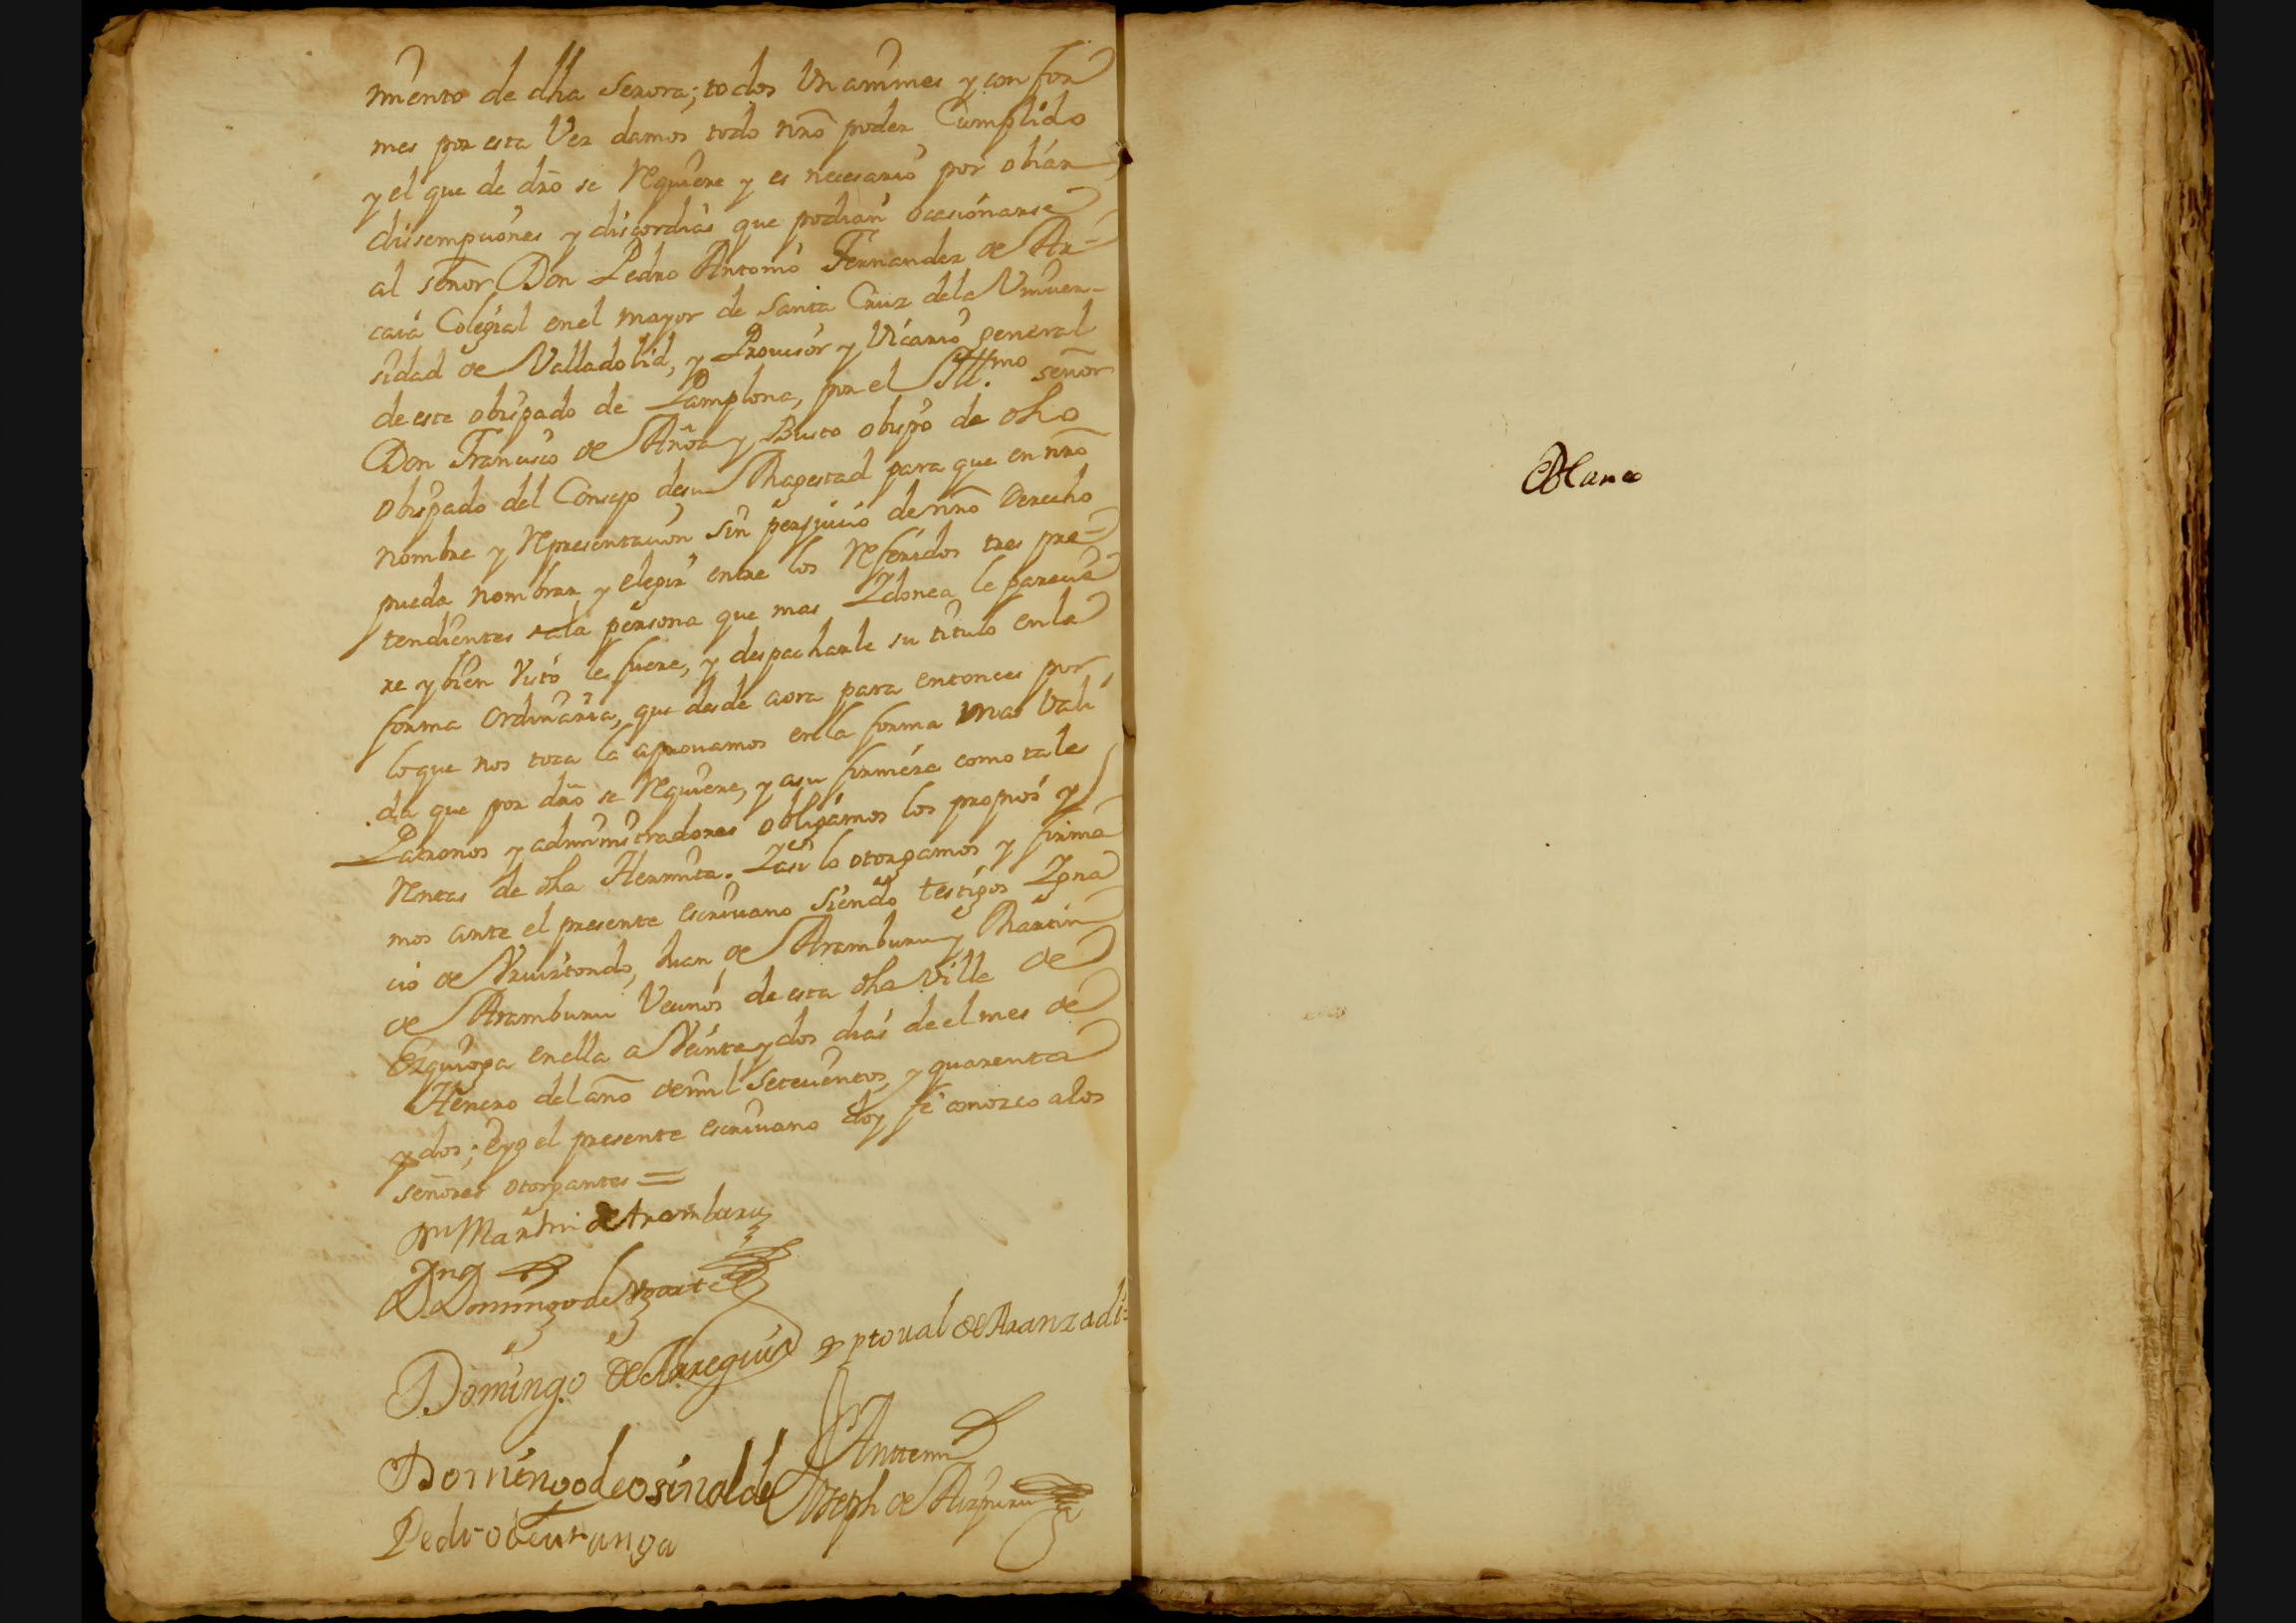 miento de dha Señora; todos Unanimes y confor
mes por esta Vez damos todo nro poder Cumplido
y el que de dro se Requiere y es necesario por obiar
disempciones y discordias que podian ocasionarse
al señor Don Pedro Antonio Fernandez de Ar-
caia Colegial en el mayor de Santa Cruz dela Univer-
sidad de Valladolid, y Provisor y Vicario general
de este obispado de Pamplona, por el Illmo señor
Don Francisco de Añoa y Busto obispo de dho
Obispado del Consejo desu Magestad para que en nro
nombre y Representacion sin perjuicio de nro Derecho
pueda nombrar y elegir entre los Referidos tres pre-
tendientes a la persona que mas Idonea le parecie
re y bien Visto le fuere, y despacharle su titulo enla
forma Ordinaria, que desde aora para entonces por
loque nos toca la aprovamos enla forma mas Vali
da que por dro se Requiere, y asu firmeza como tales
Patronos y administradores obligamos los propios y
Rentas de dha Hermita. Y asi lo otorgamos y firma
mos ante el presente escrivano siendo testigos Igna
cio de Yruiztondo, Juan de Aramburu y Martin
de Aramburu Vecinos de esta dha Villa de
Ezquioga enella a Veinte y dos dias de el mes de
Henero del año de mil setecientos y quarenta
y dos; e yo el presente escrivano doy fe conozco alos
señores otorgantes =
Dn Martin de Aramburu
D. Domingo de Ugarte
Domingo de Arregui
Xptoual de Aranzadi
Domingo de osinalde
Antemi
Joseph de Aizpuru
Pedro
Blanco